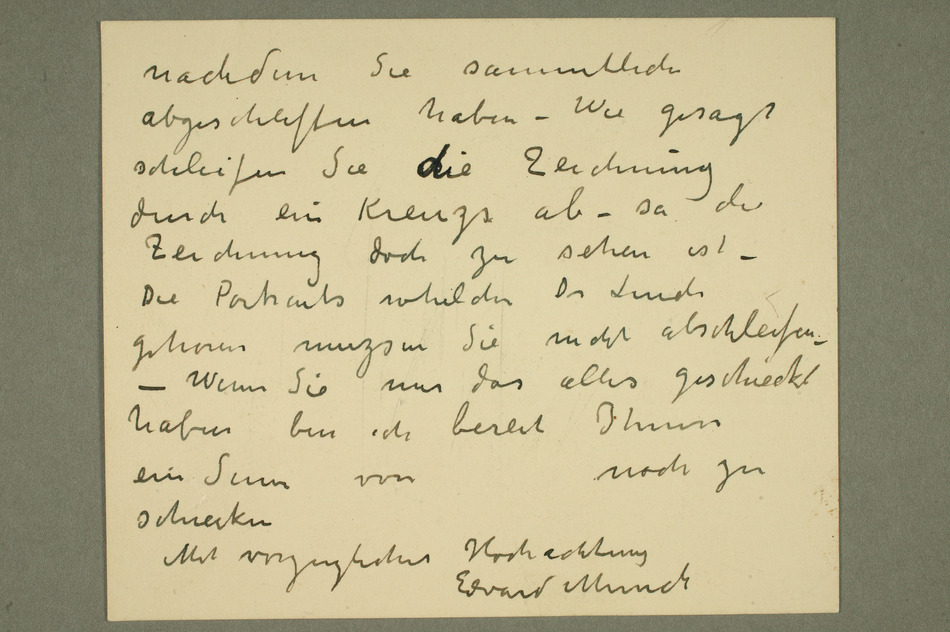 nachdem Sie sammtliche
abgeschleffen haben – Wie gesagt
schleifen Sie die Zeichnung
durch ein Kreuzs ab – sa die
Zeichnung doch zu sehen ist –
Die Portraits whelche Dr Linde
gehoren muzsen Sie nicht abschleifen –
– Wenn Sie mir das alles geschieckt
haben bin ich bereit Ihnen
ein Sum von noch zu
schiecken
Mit vorzuglicher Hochachtung
Edvard Munch